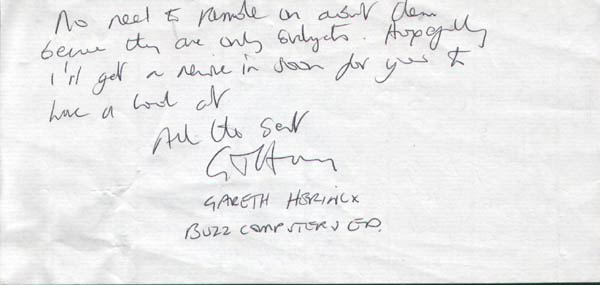 No need to ramble on about them
because they are only budgets. Hopefully
I'll get a review in soon for you to
have a look at
All the best
GARETH HERINCX
BUZZ COMPUTERS ED.